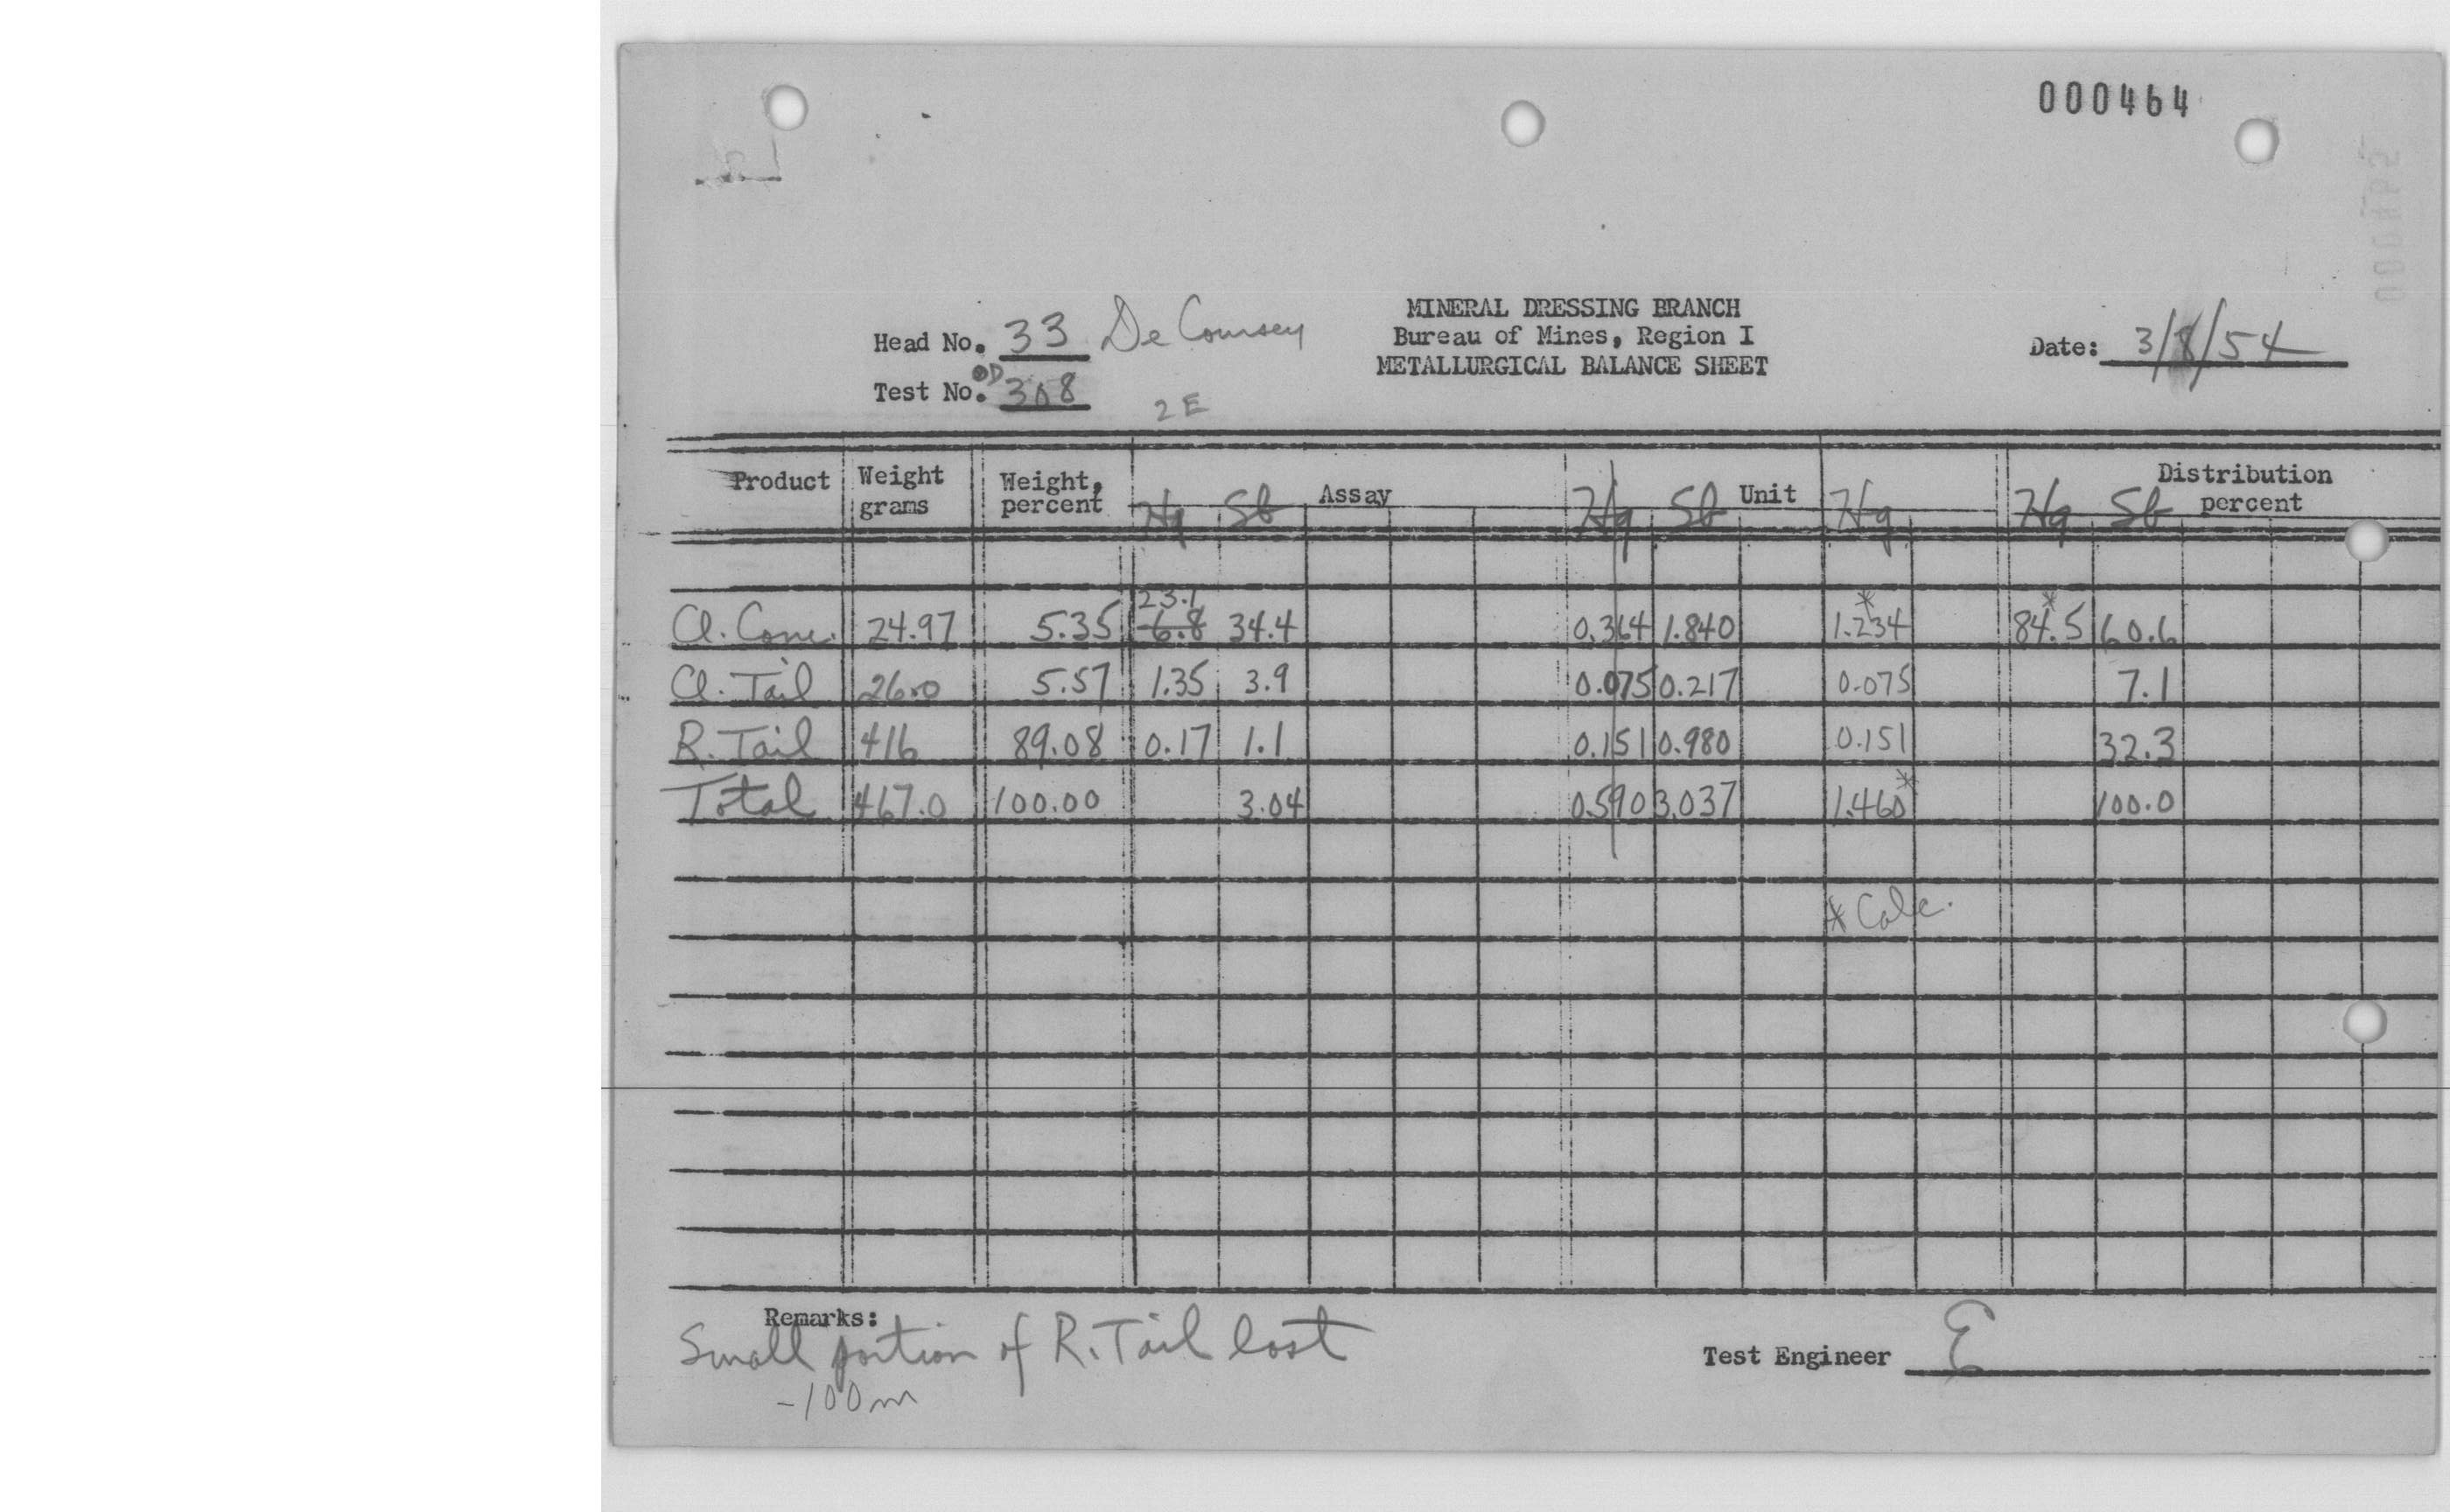 000464
MINERAL DRESSING BRANCH
Head No. 33 De Coursey Bureau of Mines, Region I Date: 3/8/54
METALLURGICAL BALANCE SHEET
Test No. OD 308
2 E
Product Weight grams Weight, percent Assay Unit Distribution percent
Hg Sb Hg Sb Hg Hg Sb
23.1 * *
Cl. Conc. 24.97 5.35 6.8 34.4 0.364 1.840 1.234 84.5 60.6
Cl. Tail 26.0 5.57 1.35 3.9 0.075 0.217 0.075 7.1
R. Tail 416 89.08 0.17 1.1 0.151 0.980 0.151 32.3
Total 467.0 100.00 3.04 0.590 3.037 1.460* 100.0
* Calc.
Remarks:
Small portion of R. Tail lost
Test Engineer E
-100m